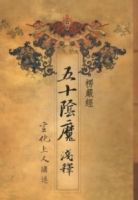 楞嚴經
五十陰魔淺釋
宣化上人講述